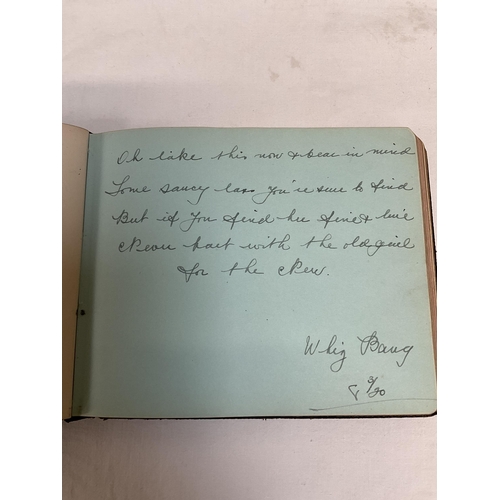 Oh take this now & bear in mind
Some saucy lass you're sure to find
But if you find her fine & live
Never part with the old girl
for the New.
Whiz Bang
8/20